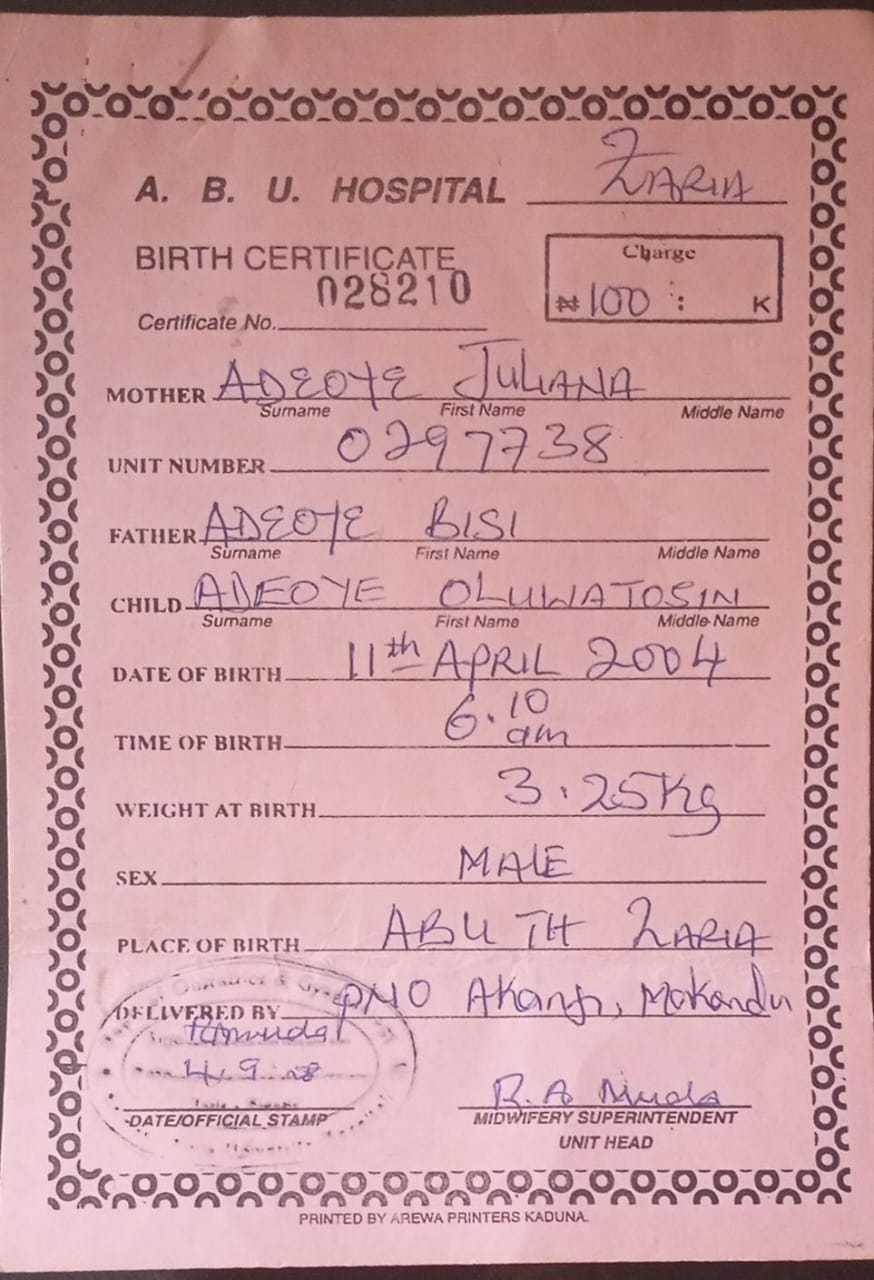 A. B. U. HOSPITAL ZARIA
BIRTH CERTIFICATE
028210
Certificate No.
Charge
₦ 100 : K
MOTHER ADEOYE JULIANA
Surname First Name Middle Name
UNIT NUMBER 0297738
FATHER ADEOYE BISI
Surname First Name Middle Name
CHILD ADEOYE OLUWATOSIN
Surname First Name Middle Name
DATE OF BIRTH 11th APRIL 2004
TIME OF BIRTH 6.10 am
WEIGHT AT BIRTH 3.25Kg
SEX MALE
PLACE OF BIRTH ABUTH ZARIA
DELIVERED BY PNO Akanji, Makandu
4.9.08
DATE/OFFICIAL STAMP
R. A Muda
MIDWIFERY SUPERINTENDENT
UNIT HEAD
PRINTED BY AREWA PRINTERS KADUNA.